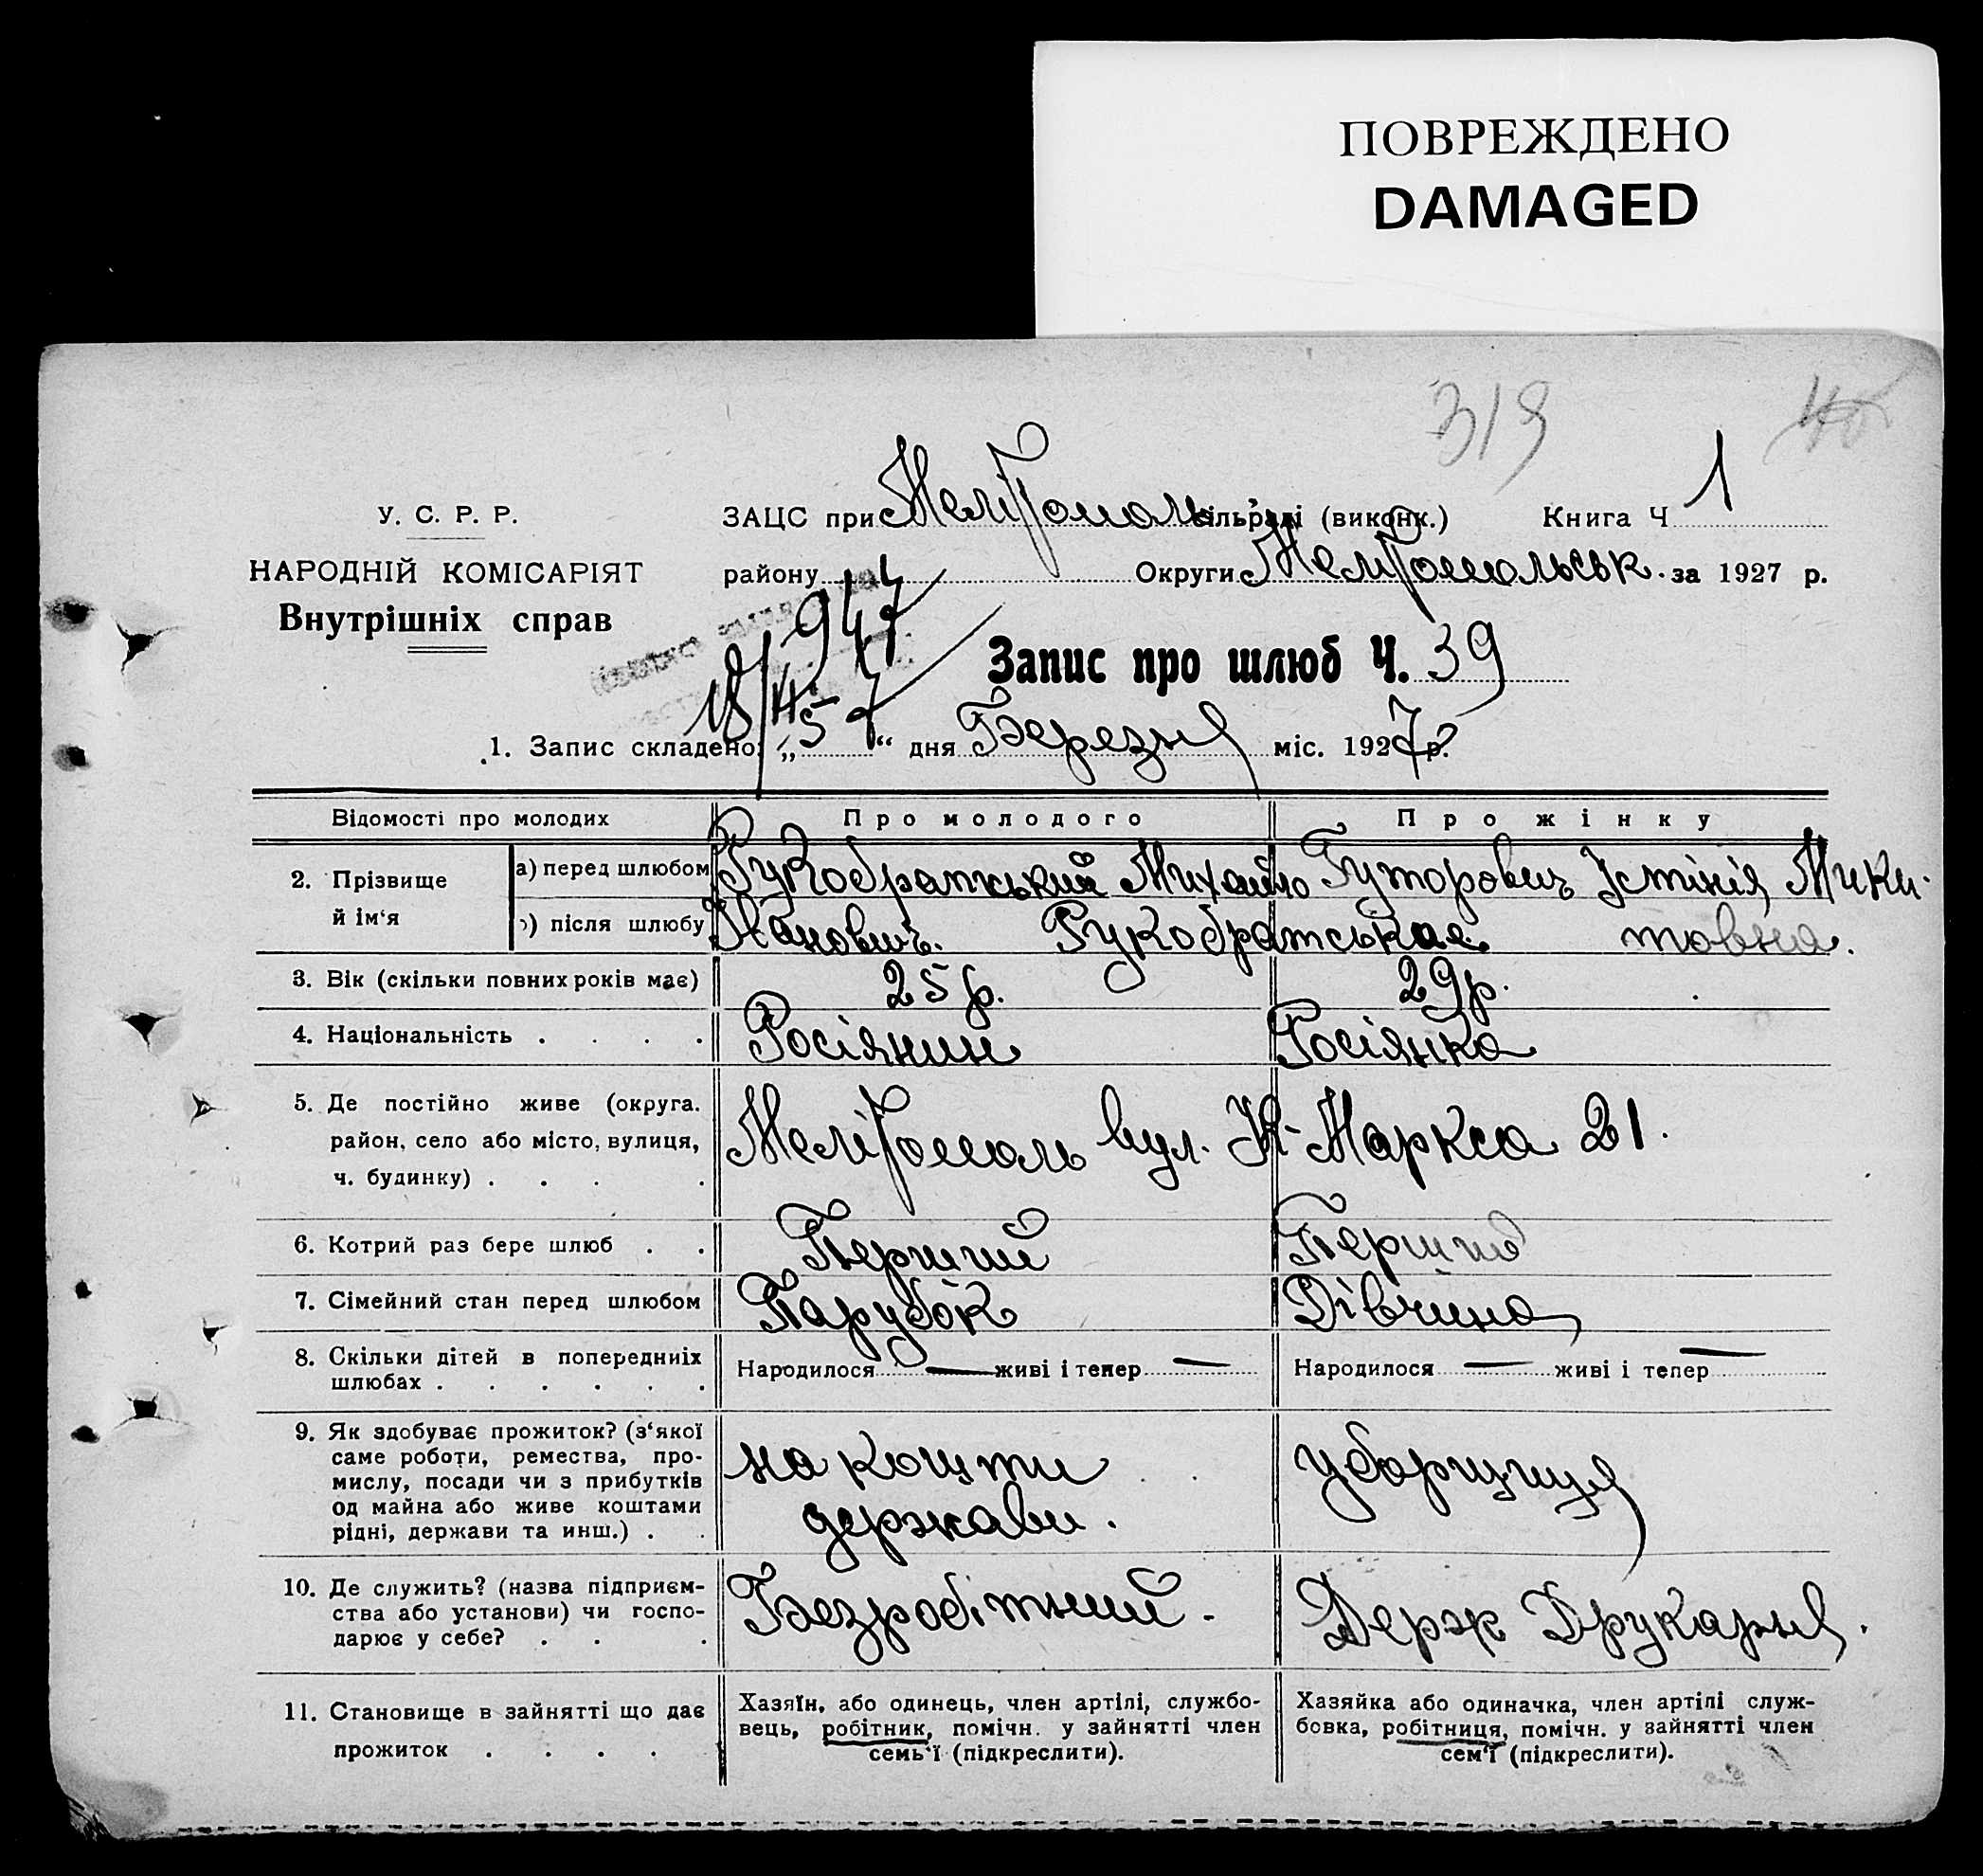 ПОВРЕЖДЕНО
DAMAGED
319
У. С. Р. Р.
НАРОДНІЙ КОМІСАРІЯТ
Внутрішніх справ
ЗАЦС при Мелітополь сільраді (виконк.) Книга Ч 1
району Округи Мелітопольськ. за 1927 р.
947
Запис про шлюб Ч. 39
18/II 57
1. Запис складено: „5“ дня Березня міс. 1927 р.
Відомості про молодих Про молодого Про жінку
2. Прізвище й ім‘я
а) перед шлюбом Рукобратський Михайло Гуторович Устінія Мики-
б) після шлюбу Іванович. Рукобратськая товна.
3. Вік (скільки повних років має) 25 р. 29 р.
4. Національність . . . . Росіянин Росіянка
5. Де постійно живе (округа.
район, село або місто, вулиця, Мелітополь вул. К-Маркса 21.
ч. будинку) . . . .
6. Котрий раз бере шлюб . . Перший Перший
7. Сімейний стан перед шлюбом Парубок Дівчина
8. Скільки дітей в попередниіх
шлюбах . . . . . . Народилося — живі і тепер — Народилося — живі і тепер —
9. Як здобуває прожиток? (з‘якої
саме роботи, ремества, про-
мислу, посади чи з прибутків
од майна або живе коштами
рідні, держави та инш.) . .
на кошти
держави.
уборщиця
10. Де служить? (назва підприєм-
ства або установи) чи госпо-
дарює у себе? . . .
Безробітний. Держ Друкарня.
11. Становище в зайнятті що дає
прожиток . . . .
Хазяїн, або одинець, член артілі, службо-
вець, робітник, помічн. у зайнятті член
семь‘ї (підкреслити).
Хазяйка або одиначка, член артілі служ-
бовка, робітниця, помічн. у зайнятті член
сем‘ї (підкреслити).